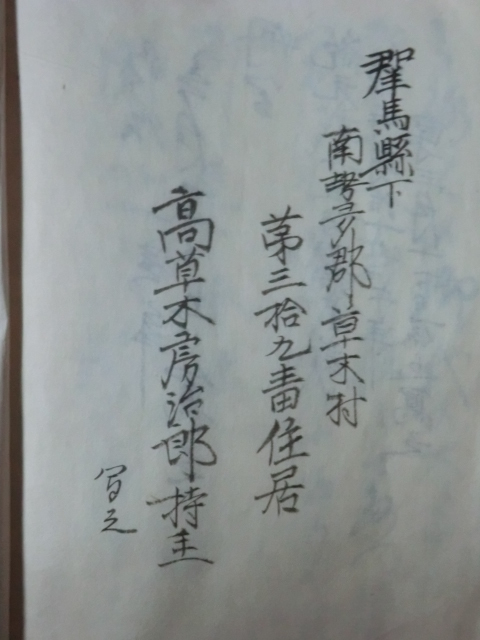 羣馬縣下
南勢多郡草木村
第三拾九番住居
高草木房治郎持主
写之